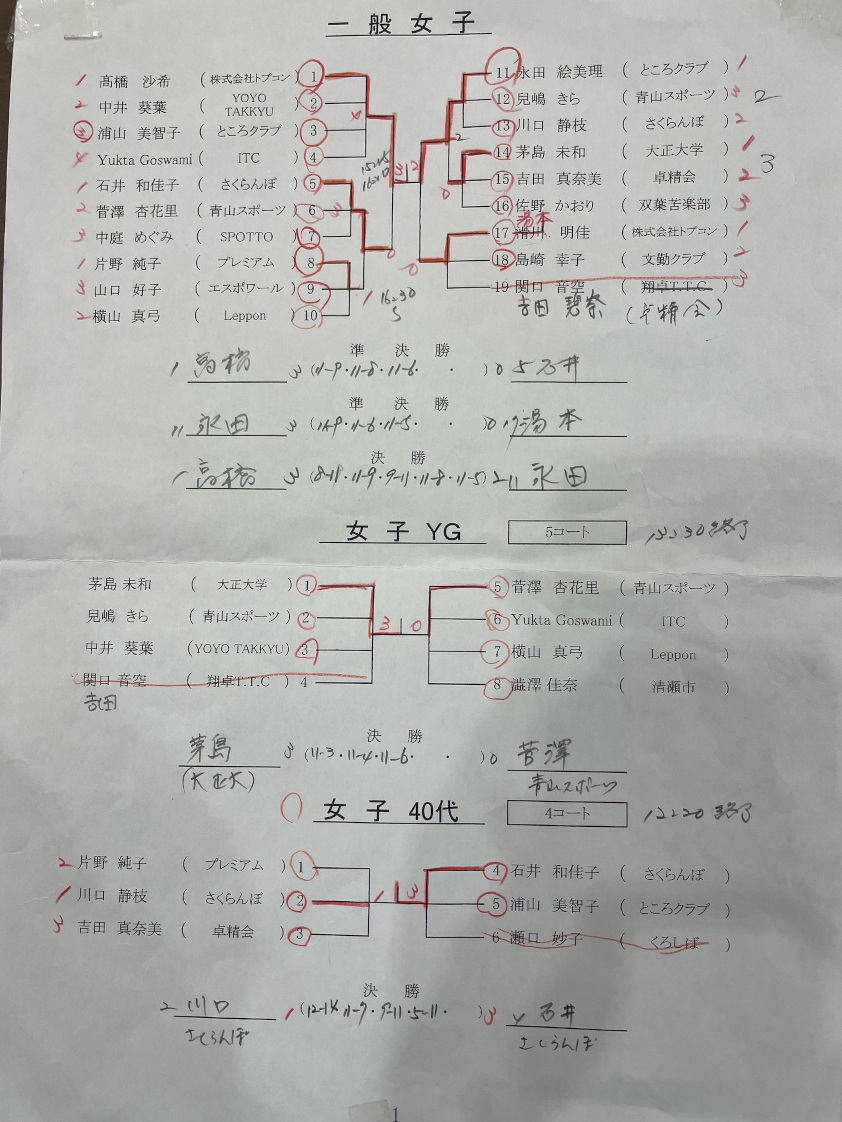 一般女子
1 髙橋 沙希 (株式会社トプコン) 1
2 中井 葵葉 (YOYO TAKKYU) 2
3 浦山 美智子 (ところクラブ) 3
4 Yukta Goswami (ITC) 4
1 石井 和佳子 (さくらんぼ) 5
2 菅澤 杏花里 (青山スポーツ) 6
3 中庭 めぐみ (SPOTTO) 7
1 片野 純子 (プレミアム) 8
3 山口 好子 (エスポワール) 9
2 横山 真弓 (Leppon) 10
3 2
0
0
11 永田 絵美理 (ところクラブ) 1
12 兒嶋 きら (青山スポーツ) 3 2
13 川口 静枝 (さくらんぼ) 2
14 茅島 未和 (大正大学) 1
15 吉田 真奈美 (卓精会) 2 3
16 佐野 かおり (双葉苦楽部) 3
湯本
17 滑川 明佳 (株式会社トプコン) 1
18 島崎 幸子 (文勤クラブ) 2
19 関口 音空 (翔卓T.T.C) 3
吉田 碧奈 (卓精会)
準決勝
1 高橋 3 (11-9・11-8・11-6・ ・ ) 0 5 石井
準決勝
11 永田 3 (11-9・11-6・11-5・ ・ ) 0 17 湯本
決勝
1 高橋 3 (8-11・11-9・9-11・11-8・11-5) 2 11 永田
女子 YG
5コート
終了
茅島 未和 (大正大学) 1
兒嶋 きら (青山スポーツ) 2
中井 葵葉 (YOYO TAKKYU) 3
関口 音空 (翔卓T.T.C) 4
吉田
3 0
5 菅澤 杏花里 (青山スポーツ)
6 Yukta Goswami (ITC)
7 横山 真弓 (Leppon)
8 澁澤 佳奈 (清瀬市)
決勝
茅島 3 (11-3・11-4・11-6・ ・ ) 0 菅澤
(大正大) 青山スポーツ
女子 40代
4コート
12:20 終了
2 片野 純子 (プレミアム) 1
1 川口 静枝 (さくらんぼ) 2
3 吉田 真奈美 (卓精会) 3
1 3
4 石井 和佳子 (さくらんぼ)
5 浦山 美智子 (ところクラブ)
6 瀬口 妙子 (くろしぼ)
決勝
2 川口 1 (12-14・11-9・9-11・5-11・ ) 3 4 石井
さくらんぼ さくらんぼ
1